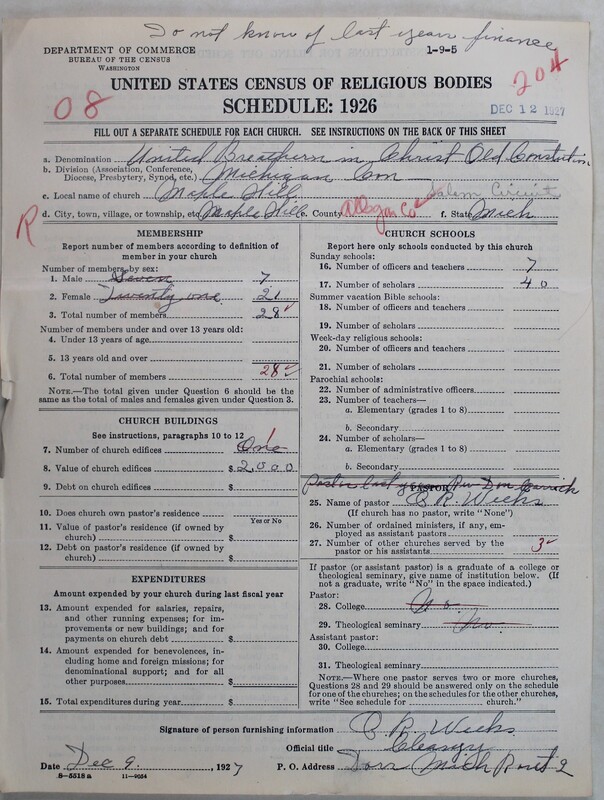 Do not know of last years finance
DEPARTMENT OF COMMERCE
BUREAU OF THE CENSUS
WASHINGTON
1-9-5
UNITED STATES CENSUS OF RELIGIOUS BODIES
SCHEDULE: 1926
08
204
DEC 12 1927
FILL OUT A SEPARATE SCHEDULE FOR EACH CHURCH. SEE INSTRUCTIONS ON THE BACK OF THIS SHEET
a. Denomination United Breathern in Christ Old Constution
b. Division (Association, Conference, Diocese, Presbytery, Synod, etc.) Michigan Con
c. Local name of church Maple Hill Salem Circuit
R
d. City, town, village, or township, etc. Maple Hill e. County Allegan Co f. State Mich
MEMBERSHIP
Report number of members according to definition of
member in your church
Number of members by sex:
1. Male Seven 7
2. Female Twenty one 21
3. Total number of members 28
Number of members under and over 13 years old:
4. Under 13 years of age
5. 13 years old and over
6. Total number of members 28
NOTE.—The total given under Question 6 should be the
same as the total of males and females given under Question 3.
CHURCH BUILDINGS
See instructions, paragraphs 10 to 12
7. Number of church edifices One 1
8. Value of church edifices $ 2,000
9. Debt on church edifices $
10. Does church own pastor's residence
Yes or No
11. Value of pastor's residence (if owned by
church) $
12. Debt on pastor's residence (if owned by
church) $
EXPENDITURES
Amount expended by your church during last fiscal year
13. Amount expended for salaries, repairs,
and other running expenses; for im-
provements or new buildings; and for
payments on church debt $
14. Amount expended for benevolences, in-
cluding home and foreign missions; for
denominational support; and for all
other purposes $
15. Total expenditures during year $
CHURCH SCHOOLS
Report here only schools conducted by this church
Sunday schools:
16. Number of officers and teachers 7
17. Number of scholars 40
Summer vacation Bible schools:
18. Number of officers and teachers
19. Number of scholars
Week-day religious schools:
20. Number of officers and teachers
21. Number of scholars
Parochial schools:
22. Number of administrative officers
23. Number of teachers—
a. Elementary (grades 1 to 8)
b. Secondary
24. Number of scholars—
a. Elementary (grades 1 to 8)
b. Secondary
Pastor last year Rev Don
PASTOR
25. Name of pastor C. R. Weeks
(If church has no pastor, write "None")
26. Number of ordained ministers, if any, em-
ployed as assistant pastors
27. Number of other churches served by the
pastor or his assistants 3
If pastor (or assistant pastor) is a graduate of a college or
theological seminary, give name of institution below. (If
not a graduate, write "No" in the space indicated.)
Pastor:
28. College No
29. Theological seminary No
Assistant pastor:
30. College
31. Theological seminary
NOTE.—Where one pastor serves two or more churches,
Questions 28 and 29 should be answered only on the schedule
for one of the churches; on the schedules for the other churches,
write "See schedule for church."
Signature of person furnishing information C R Weeks
Official title Cleargy
Date Dec 9, 1927 P. O. Address Dorr Mich Rout 2
8-5518 a 11-9054